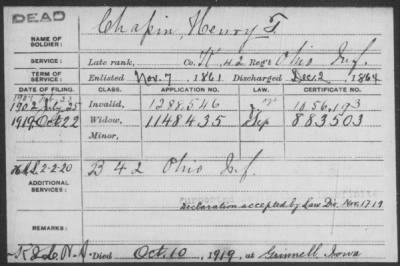 DEAD
NAME OF SOLDIER: Chapin, Henry T.
SERVICE: Late rank, Co. K, 42 Reg't Ohio Inf.
TERM OF SERVICE: Enlisted Nov. 7, 1861 Discharged Dec. 2, 1864
DATE OF FILING. CLASS. APPLICATION NO. LAW. CERTIFICATE NO.
1902 July 25 Invalid, 1288546 1056,193
1919 Oct 22 Widow, 1148435 Sep 883503
Minor,
2-2-20 B 42 Ohio Inf.
ADDITIONAL SERVICES:
Declaration accepted by Law Div. Nov. 17 19
REMARKS:
Died Oct. 10, 1919, at Grinnell, Iowa